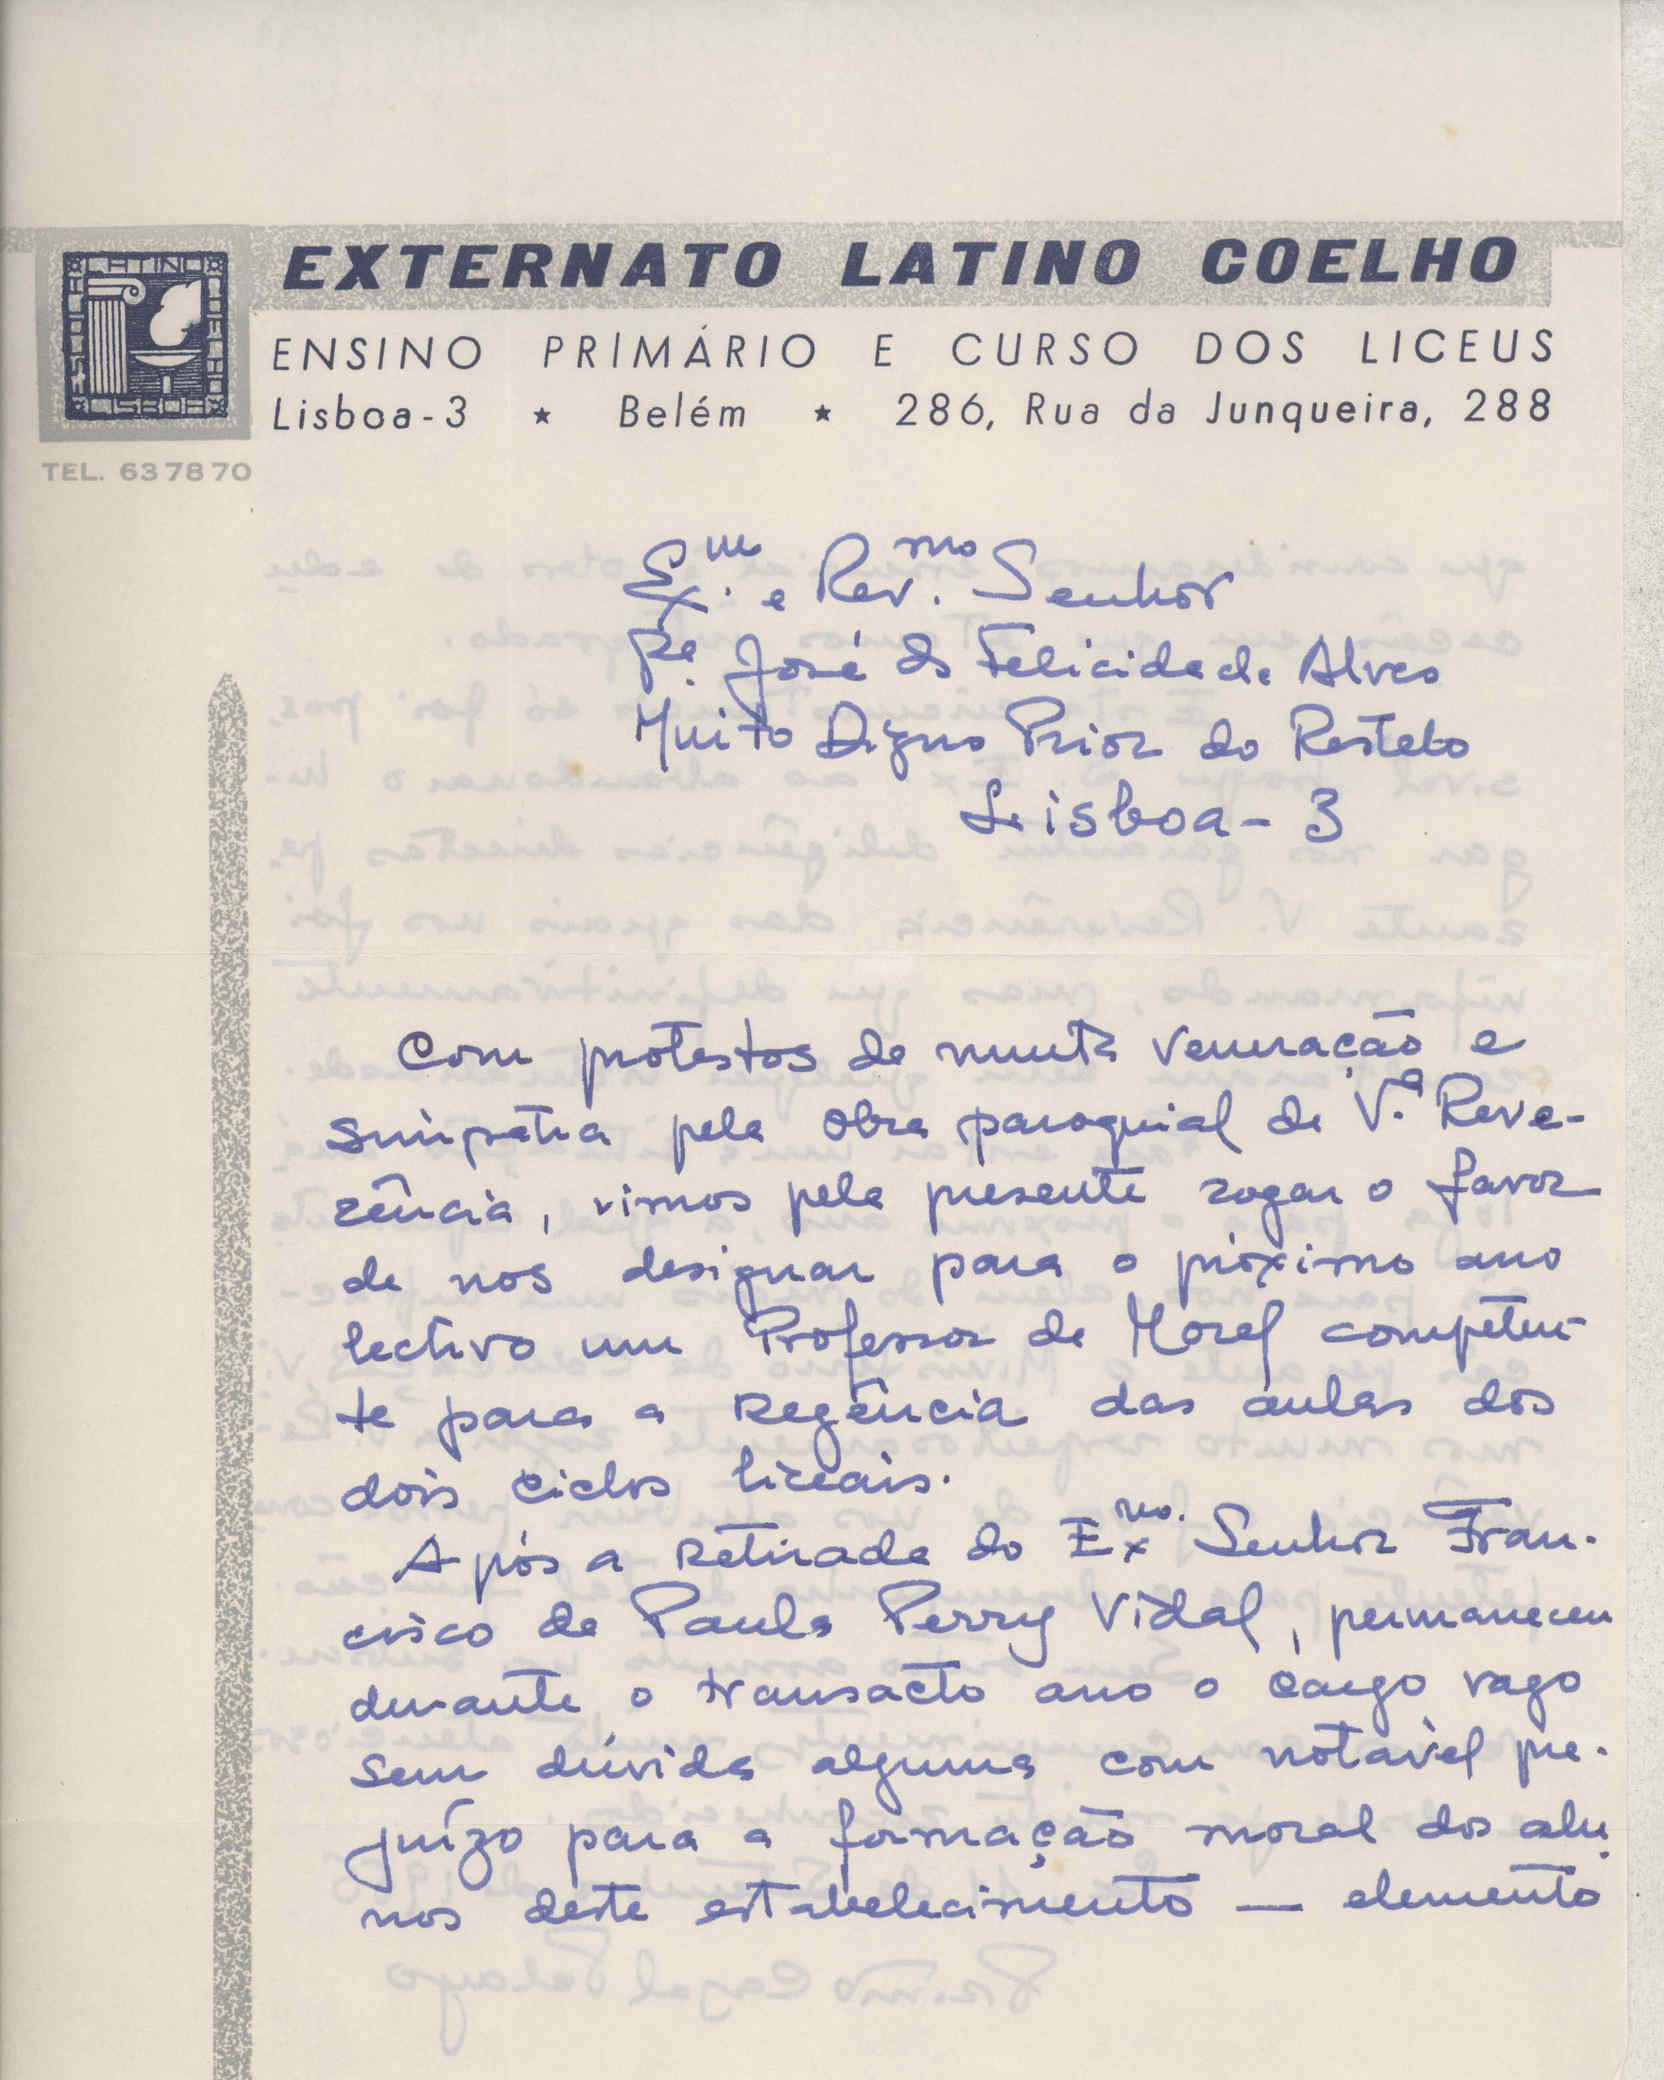 EXTERNATO LATINO COELHO
ENSINO PRIMÁRIO E CURSO DOS LICEUS
Lisboa-3 ★ Belém ★ 286, Rua da Junqueira, 288
TEL. 637870
Ex.mo e Rev.mo Senhor
Pe. José da Felicidade Alves
Muito Digno Prior do Restelo
Lisboa-3
Com protestos de muita veneração e
simpatia pela obra paroquial de V.a Reve-
rência, vimos pela presente rogar o favor
de nos designar para o próximo ano
lectivo um Professor de Moral competen-
te para a regência das aulas dos
dois ciclos liceais.
Após a retirada do Exmo. Senhor Fran-
cisco de Paula Perry Vidal, permaneceu
durante o transacto ano o cargo vago
sem dúvida alguma com notável pre-
juízo para a formação moral dos alu-
nos deste estabelecimento — elemento